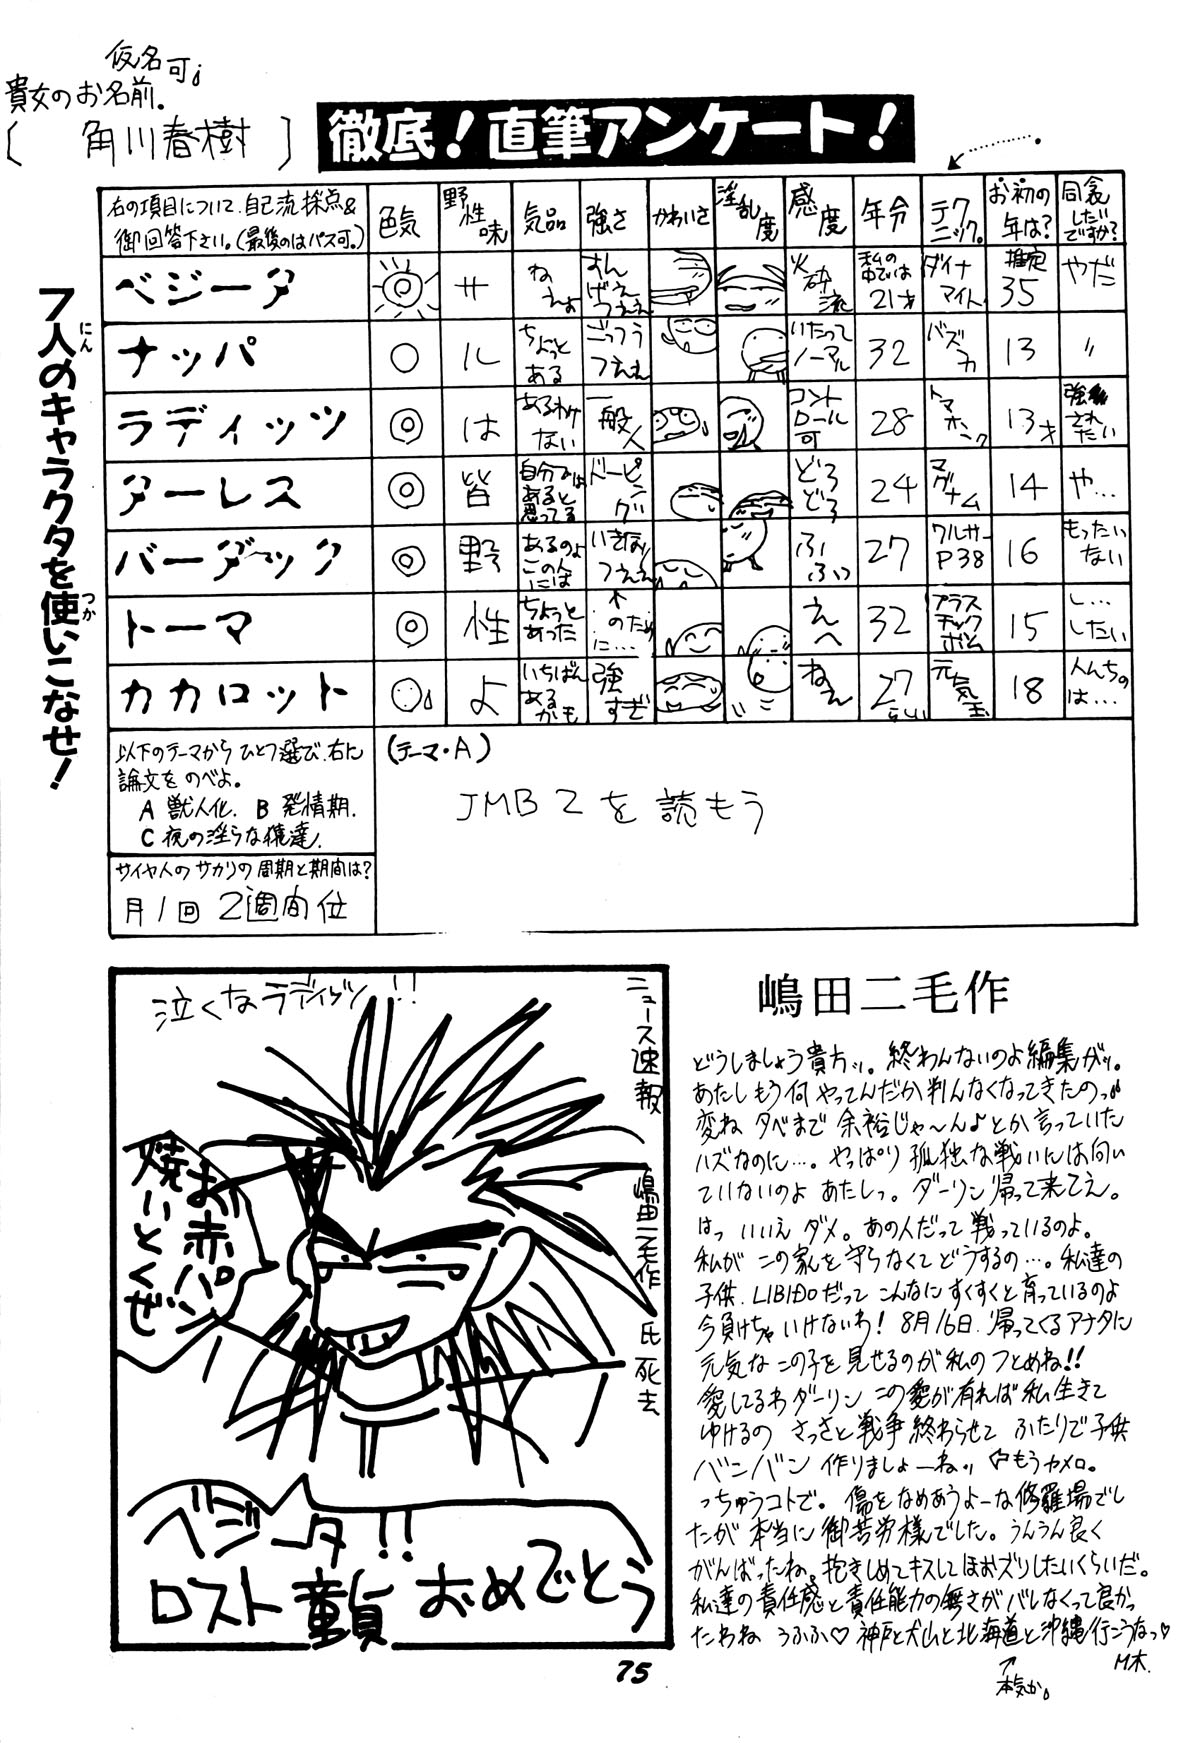 仮名可。
貴女のお名前。
[ 角川春樹 ]
徹底！直筆アンケート！
7人のキャラクタを使いこなせ！
にん
つか
右の項目について、自己流採点&
御回答下さい。(最後のはパス可。)
色気 野性味 気品 強さ かわいさ 淫乱度 感度 年令 テクニック。 お初の年は？ 同衾したいですか？
ベジータ ◎ サ ねぇよ すんげぇつえぇ 火砕流 私の中では21才 ダイナマイト 推定35 やだ
ナッパ ○ ル ちょっとある ごっつうつえぇ いたってノーマル 32 バズーカ 13 〃
ラディッツ ◎ は あるわけない 一般人 コントロール可 28 トマホーク 13才 強されたい
ターレス ◎ 皆 自分ではあると思ってる ドーピング どろどろ 24 マグナム 14 や…
バーダック ◎ 野 あるのよこの人には いきなりつえぇ ふふっ 27 ワルサーP38 16 もったいない
トーマ ◎ 性 ちょっとあった ↑のために… えへ 32 プラスチックボム 15 し…したい
カカロット よ いちばんあるかも 強すぎ ねぇん 27らしい 元気玉 18 人んちのは…
以下のテーマからひとつ選び、右に
論文をのべよ。
A 獣人化. B 発情期.
C 夜の淫らな猿達.
サイヤ人のサカリの周期と期間は？
月1回 2週間位
(テーマ・A)
JMB Zを読もう
泣くなラディッツ!!
ニュース速報 嶋田二毛作氏死去
お赤パン
焼いとくぜ
ベジータ!!
ロスト童貞おめでとう
嶋田二毛作
どうしましょう貴方ッ。終わんないのよ編集がッ。
あたしもう何やってんだか判んなくなってきたのっ
変ね 夕べまで 余裕じゃ～ん♪とか言っていた
ハズなのに…。やっぱり孤独な戦いには向い
ていないのよ あたしっ。ダーリン帰って来てえ。
はっ いいえ ダメ。あの人だって戦っているのよ。
私がこの家を守らなくてどうするの…。私達の
子供、LIBIDOだって こんなにすくすくと育っているのよ
今負けちゃいけないわ！ 8月16日、帰ってくるアナタに
元気なこの子を見せるのが私のつとめね!!
愛してるわダーリン この愛が有れば私生きて
ゆけるの さっさと戦争終わらせて ふたりで子供
バンバン 作りましょーねッ もうヤメロ。
っちゅうコトで。傷をなめあうよーな修羅場でし
たが 本当に御苦労様でした。うんうん良く
がんばったね。抱きしめてキスしてほおズリしたいくらいだ。
私達の責任感と責任能力の無さがバレなくって良かっ
たわね うふふ♡ 神戸と犬山と北海道と沖縄行こうなっ♡
↑
本気か。
M木.
75